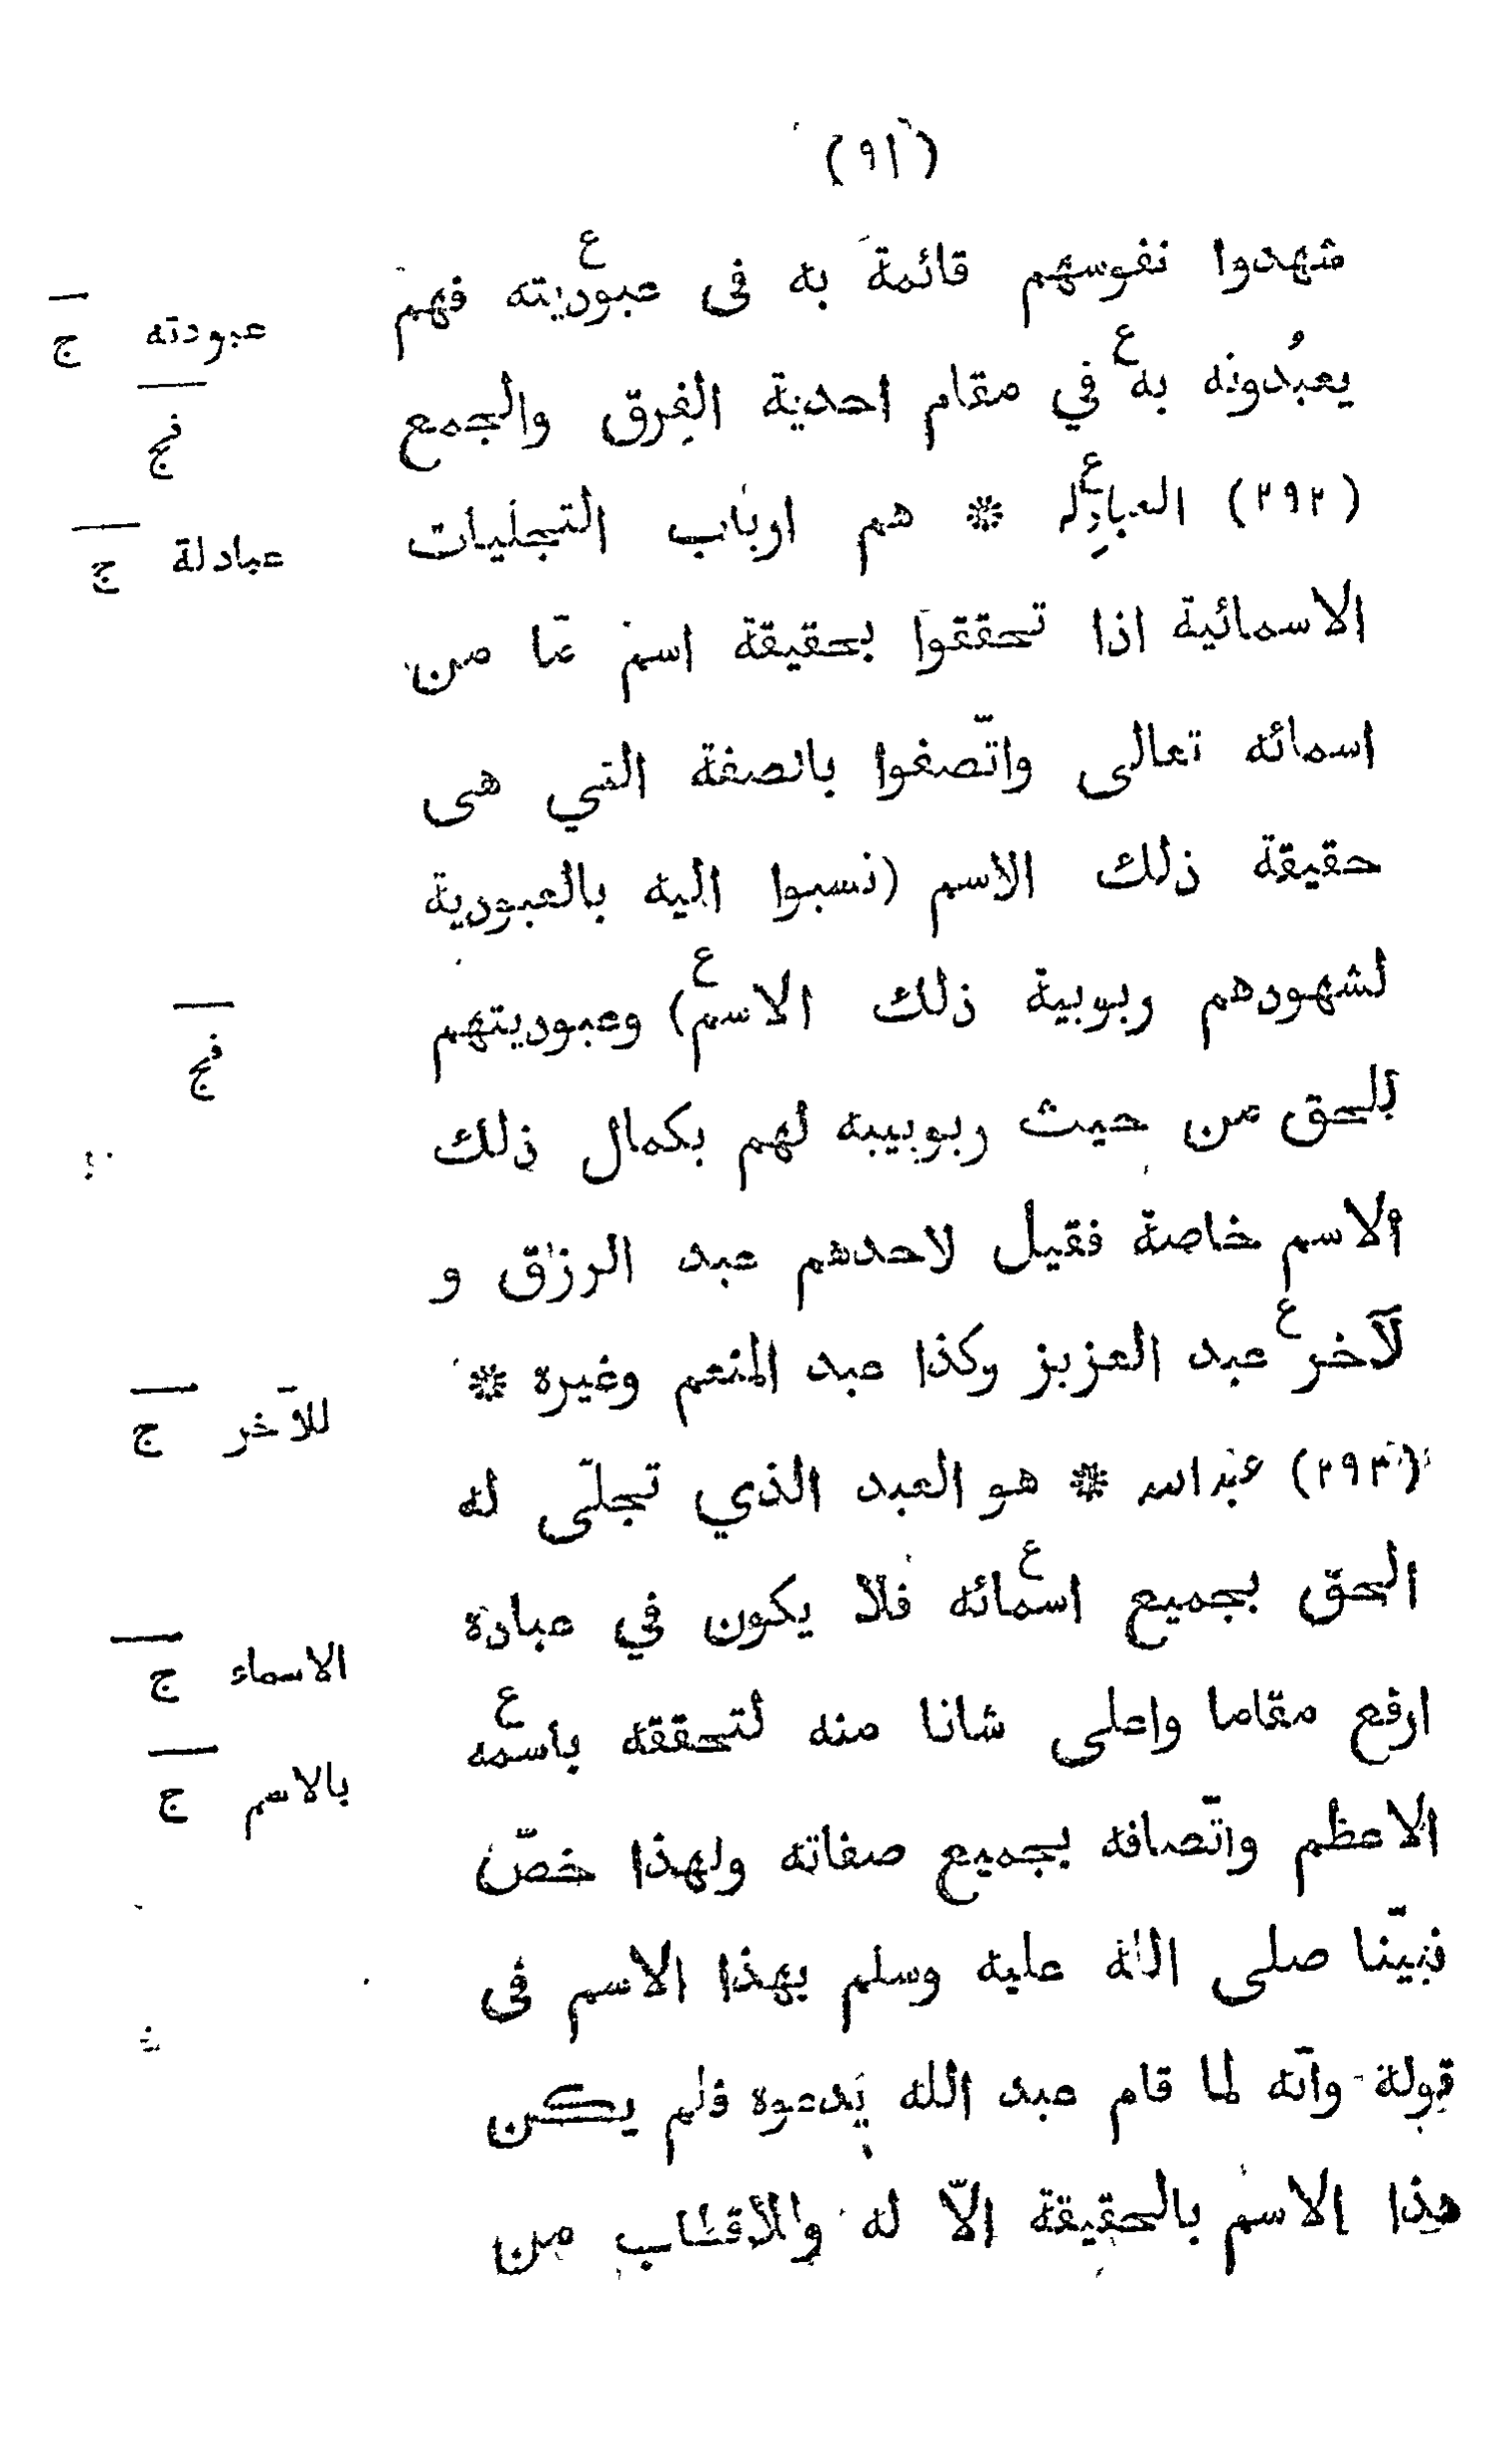 (٩١)
شهدوا نفوسهم قائمة به فى عبوديته فهم
عبودته ج
يعبُدونه به في مقام احدية الفرق والجمع
فج
(٢٩٢) العبادله * هم ارباب التجليات
عبادلة ج
الاسمائية اذا تحققوا بحقيقة اسم مّا من
اسمائه تعالى واتّصفوا بالصفة التي هى
حقيقة ذلك الاسم (نسبوا اليه بالعبودية
لشهودهم ربوبية ذلك الاسم) وعبوديتهم
فج
للحق من حيث ربوبيبه لهم بكمال ذلك
الاسم خاصة فقيل لاحدهم عبد الرزاق و
لآخر عبد العزيز وكذا عبد المنعم وغيره *
للآخر ج
(٢٩٣) عبد الله * هو العبد الذي تجلّى له
الحق بجميع اسمائه فلا يكون في عباده
الاسماء ج
ارفع مقاما واعلى شانا منه لتحققه باسمه
بالاسم ج
الاعظم واتّصافه بجميع صفاته ولهذا خصّ
نبيّنا صلى الله عليه وسلم بهذا الاسم فى
قولة وانّه لما قام عبد الله يدعوه فلم يكن
هذا الاسم بالحقيقة الّا له وللاقطاب من